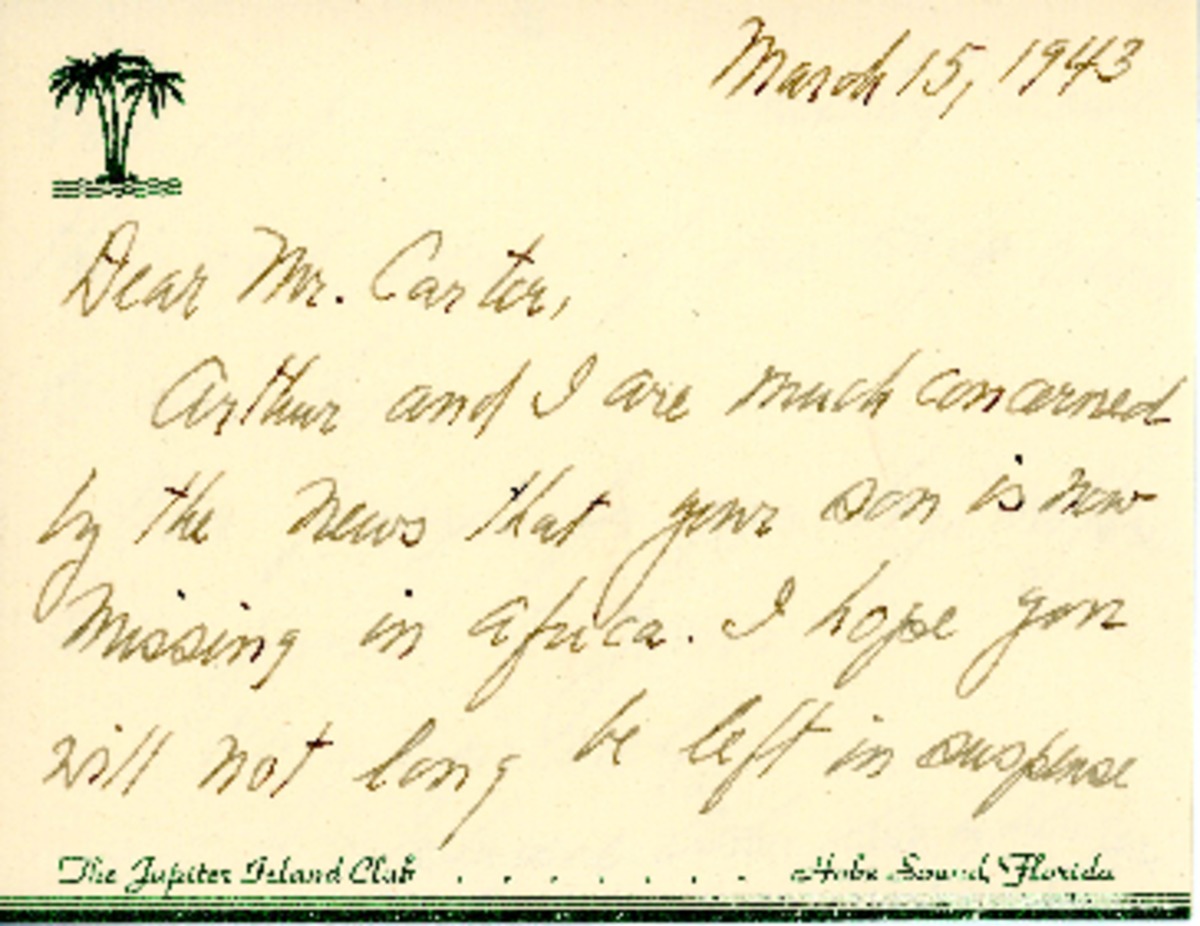 March 15, 1943
Dear Mr. Carter,
Arthur and I are much concerned
by the news that your son is now
missing in Africa. I hope you
will not long be left in suspense
The Jupiter Island Club . . . . . . . Hobe Sound, Florida